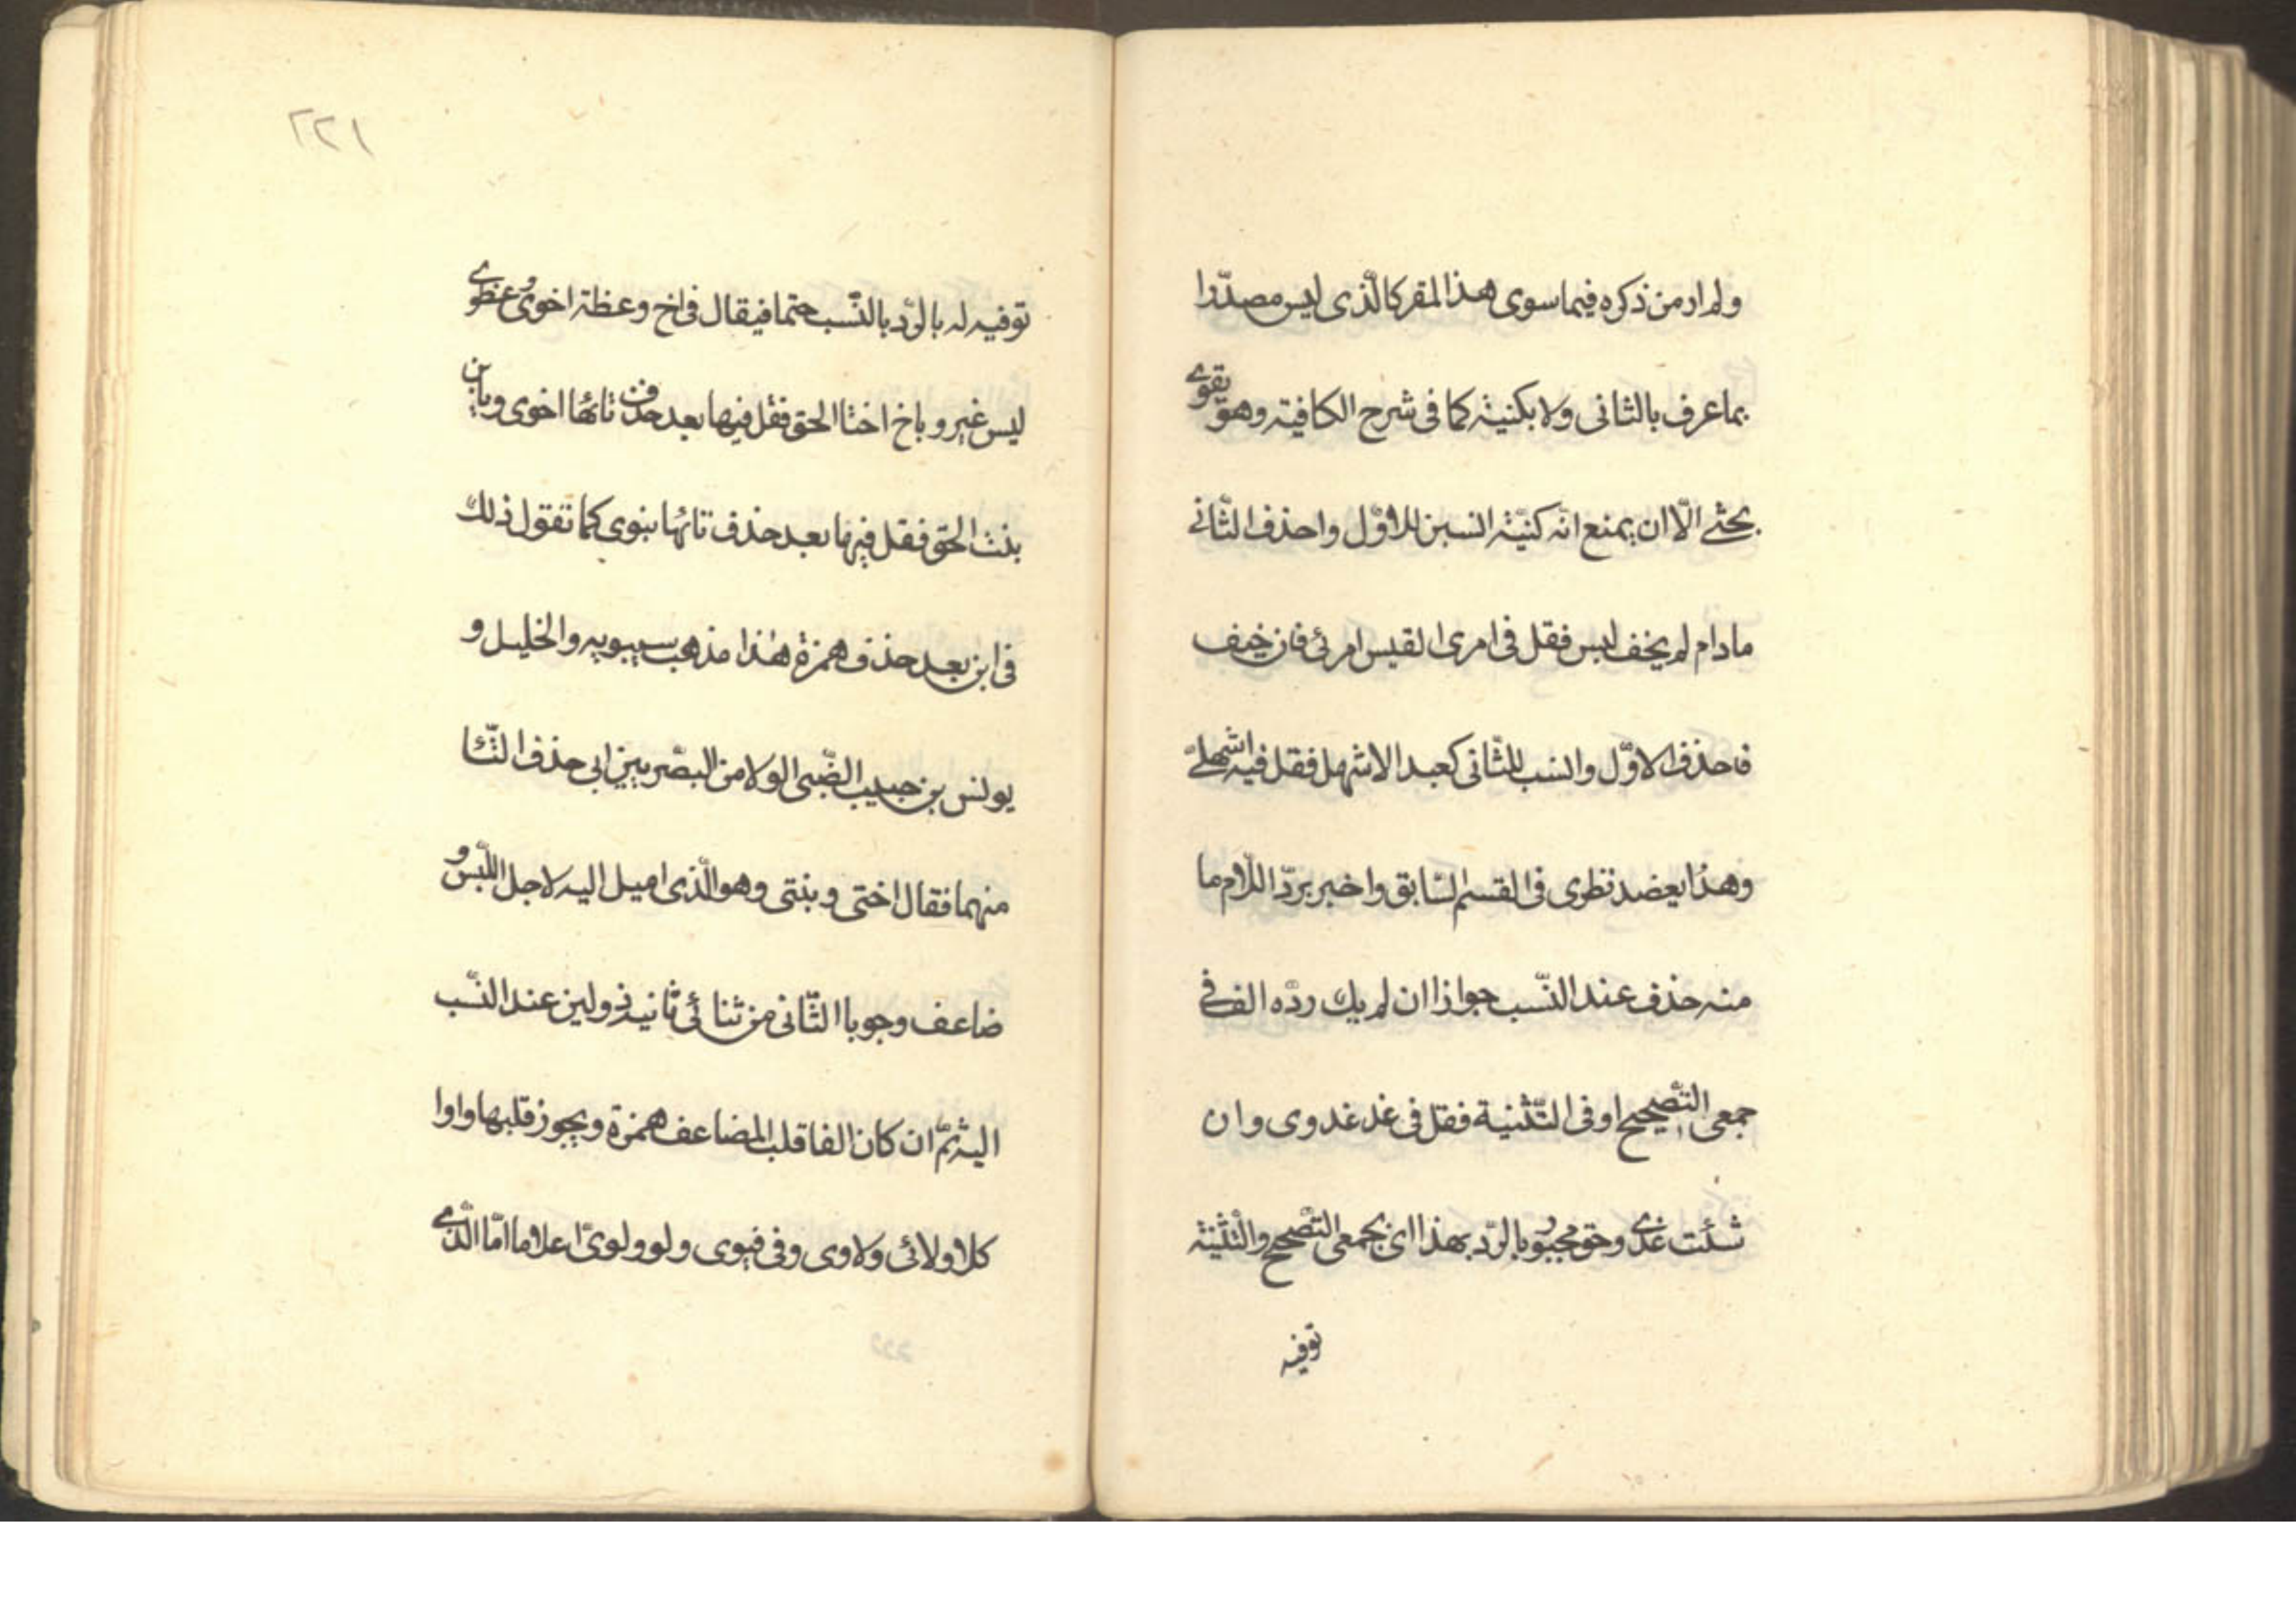 ولم ار من ذكره فيما سوى هذا المقر كالّذى ليس مصدّرا
بما عرف بالثانى ولا بكنية كما فى شرح الكافية وهو يقوى
بحثى الّا ان يمنع انّه كنيّة انسبن للاوّل واحذف الثّانى
مادام لم يخف لبس فقل فى امرى القيس امرئى فان خيف
فاحذف الاوّل وانسب للثّانى كعبد الاشهل فقل فيه اشهلىّ
وهذا يعضد نظرى فى القسم السّابق واخبر بردّ اللّام ما
منه حذف عند النّسب جوازا ان لم يك ردّه الف فى
جمعى التّصحيح او فى التّثنية فقل فى غد غدوى وان
شئت غدى وحق مجبور بالرّد بهذا اى بجمعى التّصحيح والتّثنية
توفيه
٢٢١
توفيه له بالرّد بالنّسب حتما فيقال فى اخ وعظة اخوى وعظوى
ليس غير وباخ اختا الحق فقل فيها بعد حذف تائها اخوى وبابن
بنت الحق فقل فيها بعد حذف تائها بنوى كما تقول ذلك
فى ابن بعد حذف همزة هذا مذهب سيبويه والخليل و
يونس بن حبيب الضّبى الولا من البصريين ابى حذف التّا
منهما فقال اختى وبنتى وهو الّذى اميل اليه لاجل اللّبس و
ضاعف وجوبا الثّانى من ثنائى ثانيه ذو لين عند النّسب
اليه ثمّ ان كان الفا قلب المضاعف همزة ويجوز قلبها واوا
كلا ولائى ولاوى وفى فيوى ولو ولوىّ اعلاما امّا الّذى